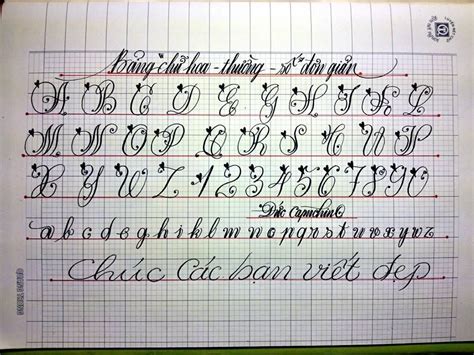 Bảng chữ hoa - thường - số đơn giản
A B C D E G H I K L
M N O P Q R S T U V
X Y Z 1 2 3 4 5 6 7 8 9 0
Đức Capuchino
a b c d e g h i k l m n o p q r s t u v x y w z
Chúc Các bạn viết đẹp